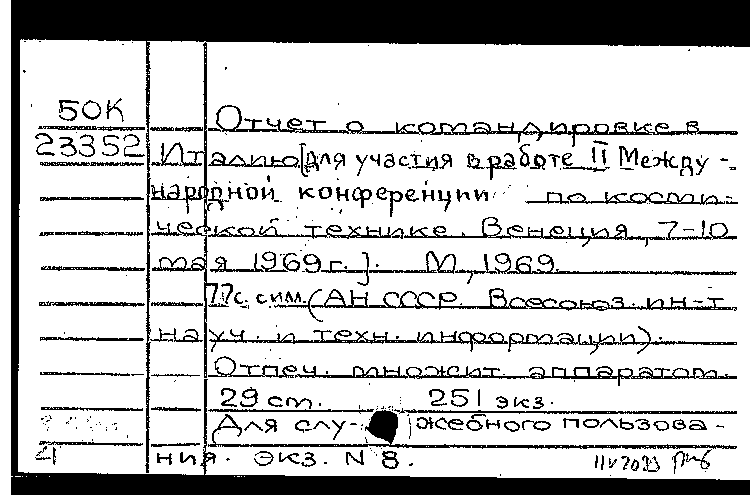 50К
Отчет о командировке в
23352
Италию [для участия в работе II Между-
народной конференции по косми-
ческой технике. Венеция, 7-10
мая 1969 г.]. М, 1969.
77с. сим. (АН СССР. Всесоюз. ин-т
науч. и техн. информации).
Отпеч. множит. аппаратом.
29 cm. 251 экз.
Для слу- жебного пользова-
ния. экз. N 8.